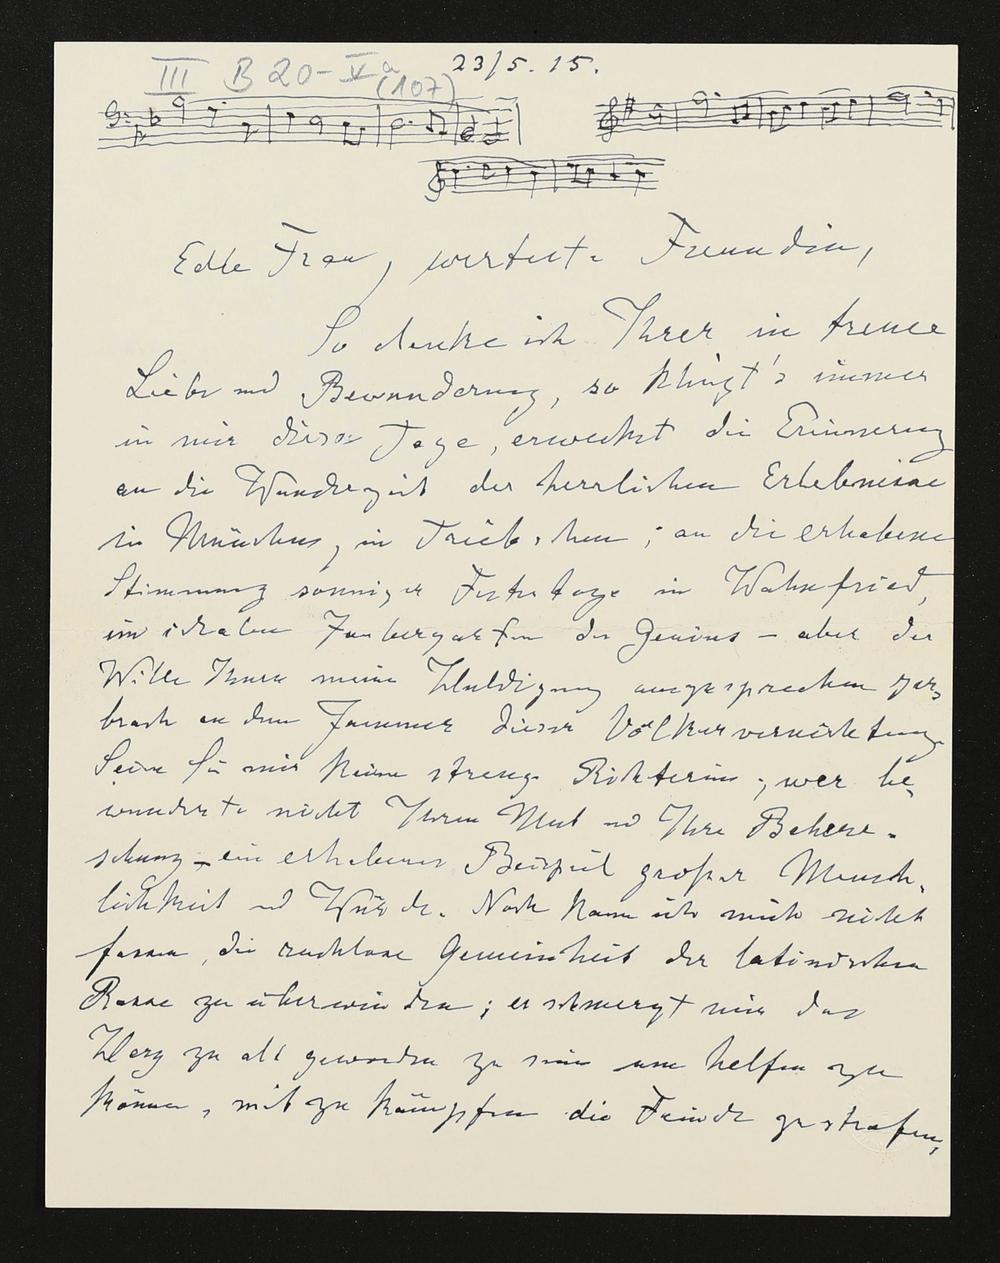 III B 20-Va
(107)
23/5. 15.
Edle Frau, werteste Freundin,
So denke ich Ihrer in treuer
Liebe und Bewunderung, so klingt's immer
in mir dieser Tage, erweckt die Erinnerung
an die Wunderzeit der herrlichen Erlebnisse
in München, in Triebschen; an die erhabene
Stimmung sonniger Festestage in Wahnfried,
im idealen Zaubergarten des Genius – aber der
Wille Ihnen meine Huldigung auszusprechen zer-
brach an dem Jammer dieser Völkervernichtung
Seien Sie mir keine strenge Richterin; wer be-
wunderte nicht Ihren Mut und Ihre Beherr-
schung – ein erhabenes Beispiel großer Mensch-
lichkeit und Würde. Noch kann ich mich nicht
fassen, die ruchlose Gemeinheit der latinischen
Rasse zu überwinden; es schmerzt mir das
Herz zu alt geworden zu sein um helfen zu
können, mit zu kämpfen die Feinde zu strafen,